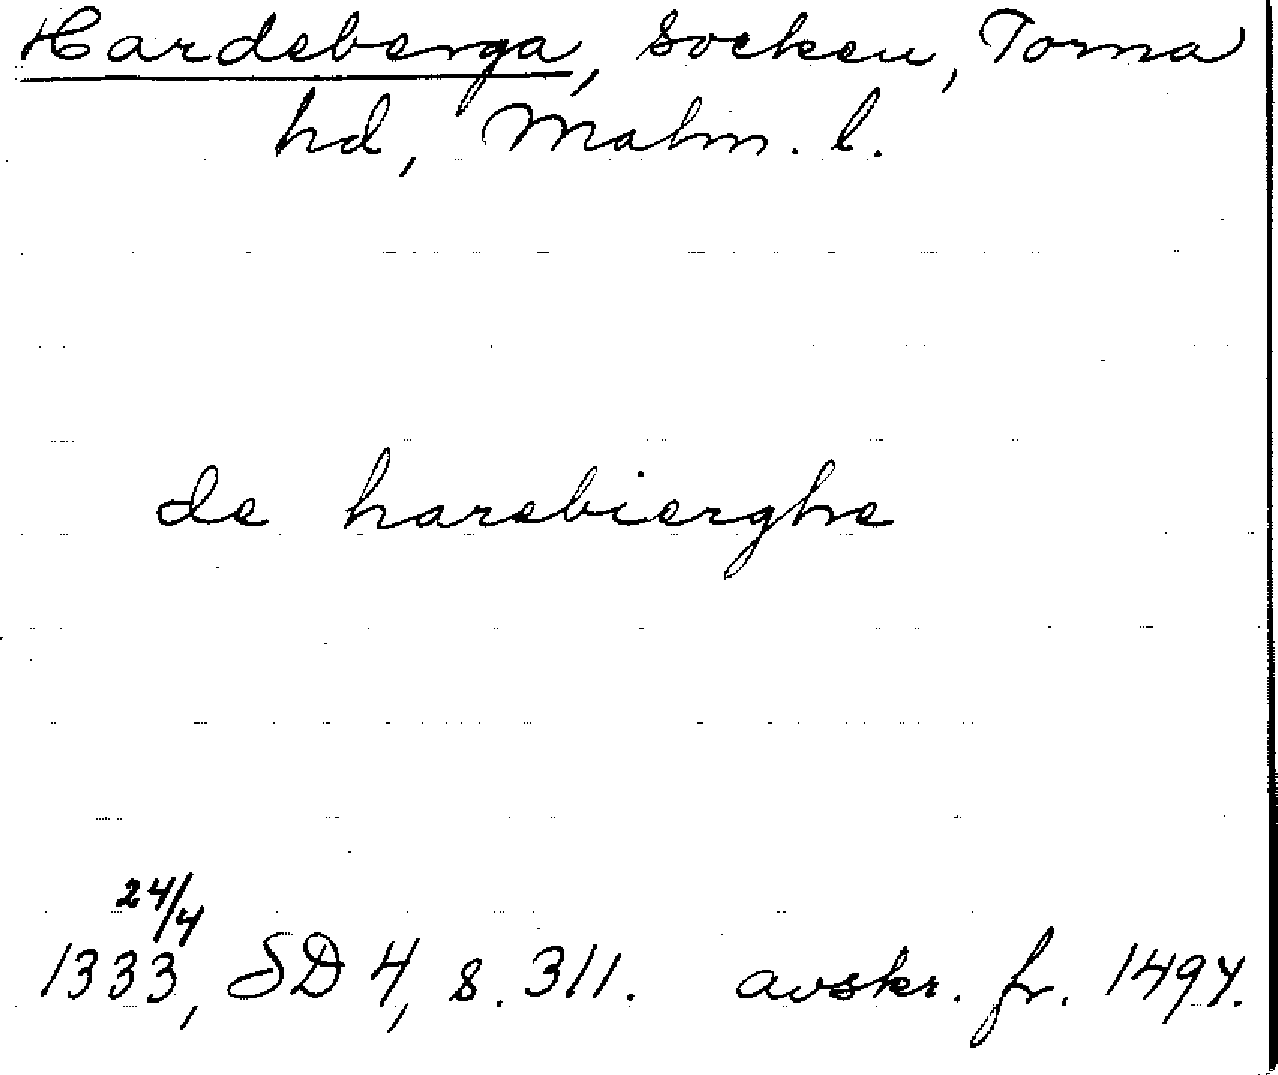 Hardeberga, Socken, Torna
hd, Malm. l.
de harebierghe
24/4
1333, SD 4, s. 311. avskr. fr. 1494.